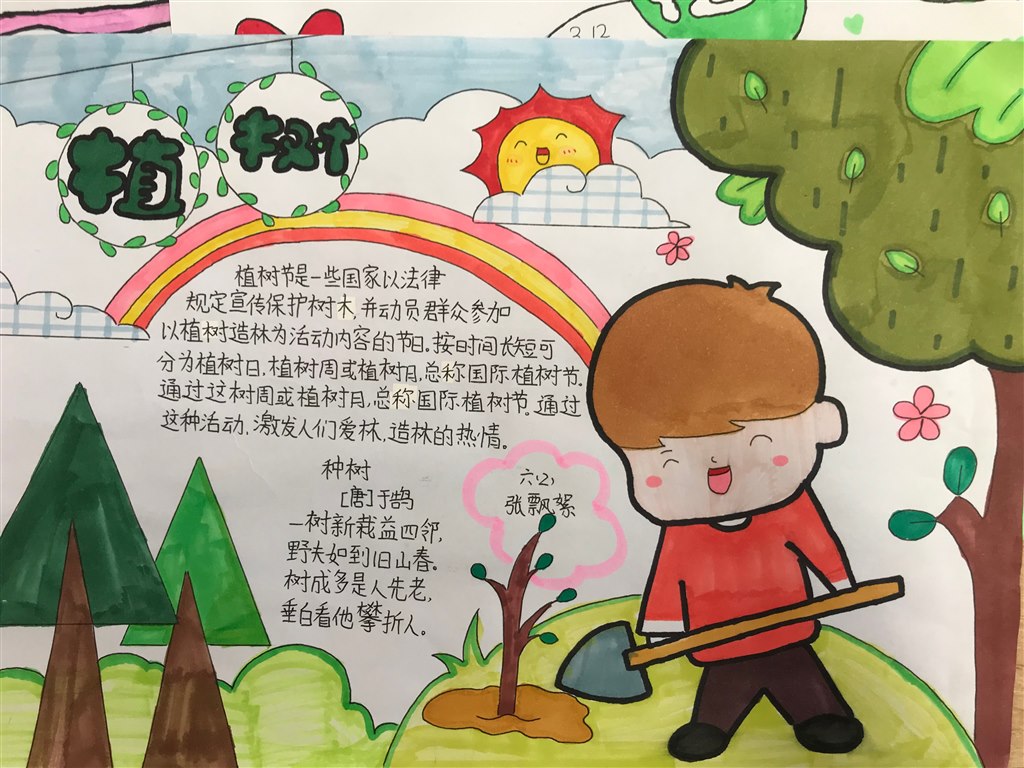 3.12
植树
植树节是一些国家以法律
规定宣传保护树木,并动员群众参加
以植树造林为活动内容的节日。按时间长短可
分为植树日,植树周或植树月,总称国际植树节。
通过这树周或植树月,总称国际植树节。通过
这种活动,激发人们爱林、造林的热情。
种树
[唐]于鹄
一树新栽益四邻,
野夫如到旧山春。
树成多是人先老,
垂白看他攀折人。
六(2)
张飘絮